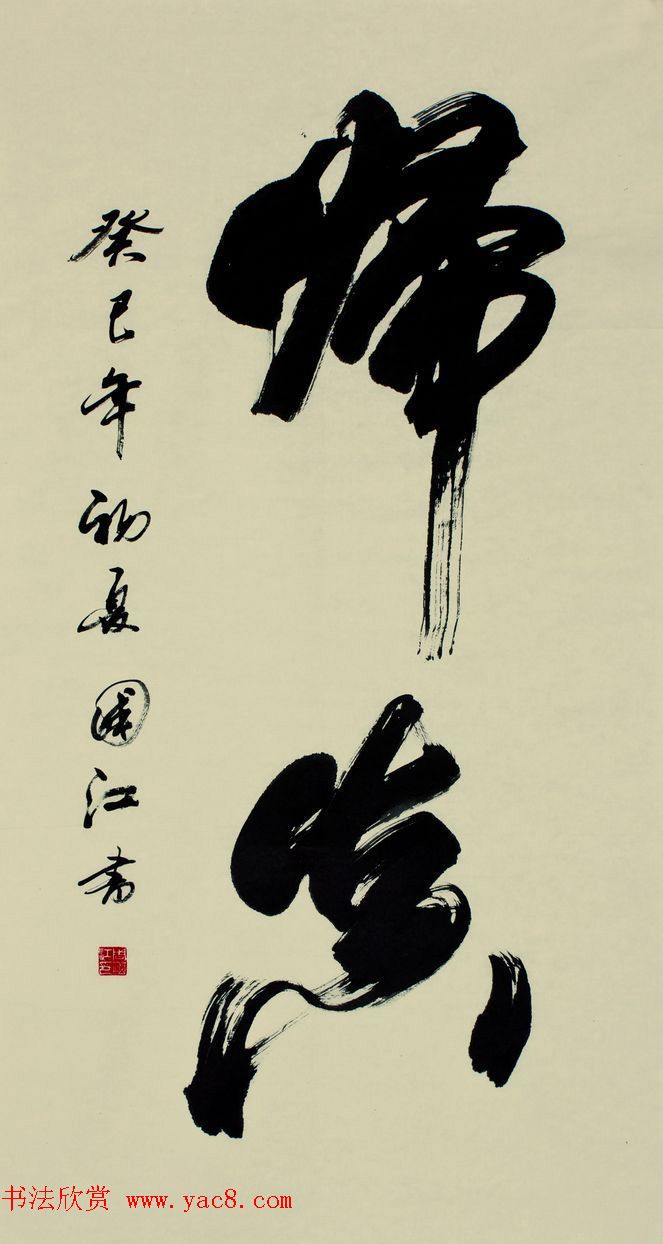 歸真
癸巳年初夏國江書
书法欣赏 www.yac8.com